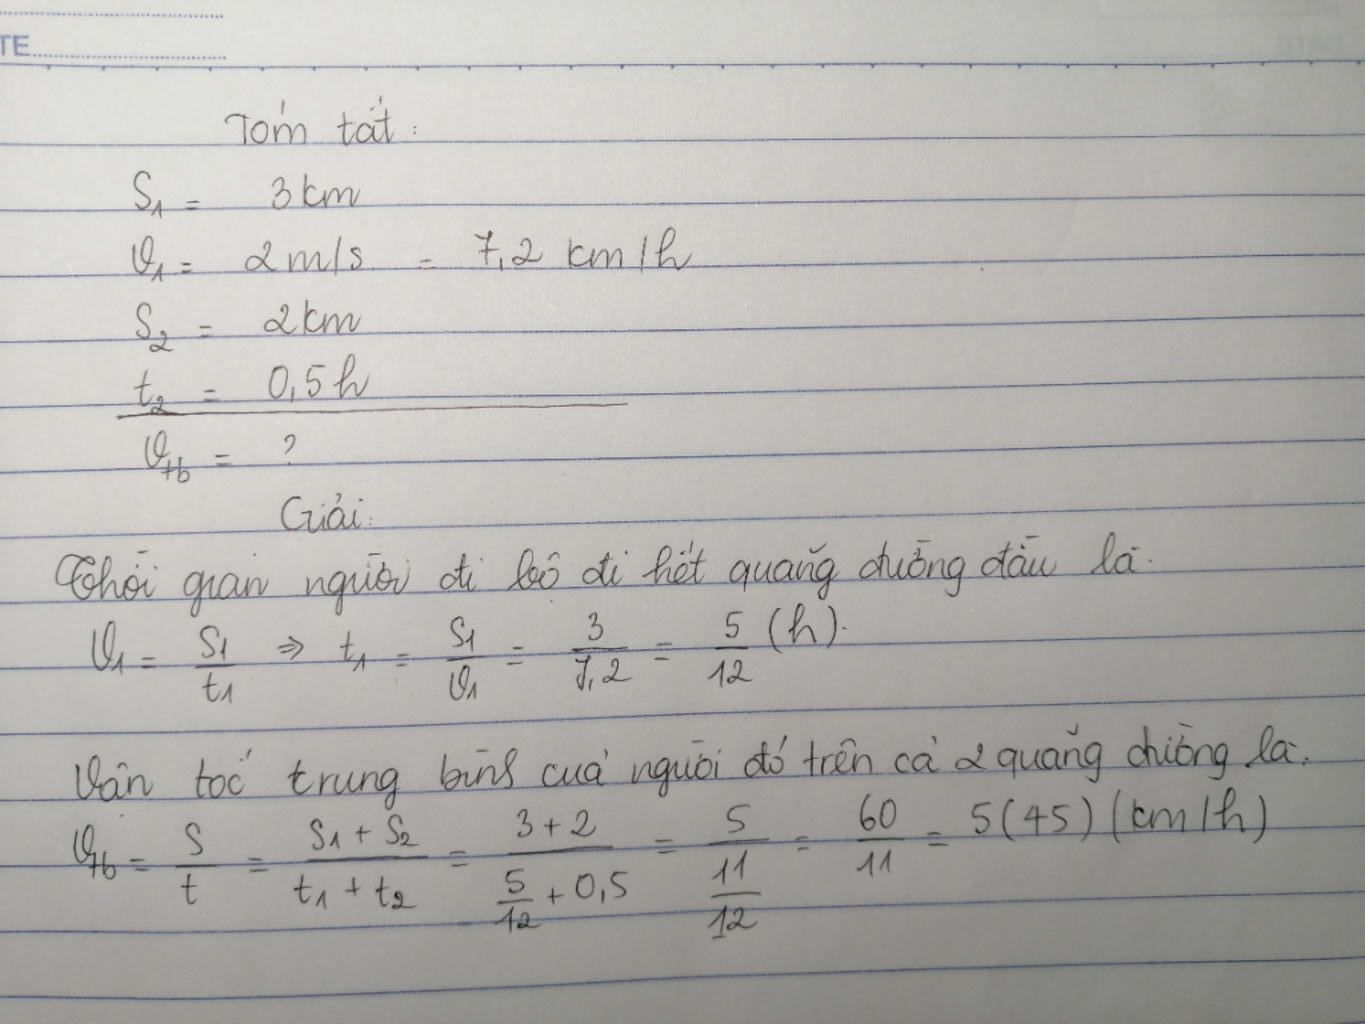 TE
Tóm tắt:
S1 = 3km
v1 = 2m/s = 7,2 km/h
S2 = 2km
t2 = 0,5h
vtb = ?
Giải:
Thời gian người đi bộ đi hết quãng đường đầu là:
v1 = S1/t1 => t1 = S1/v1 = 3/7,2 = 5/12 (h).
Vận tốc trung bình của người đó trên cả 2 quãng đường là:
vtb = S/t = (S1 + S2)/(t1 + t2) = (3+2)/(5/12 + 0,5) = 5/(11/12) = 60/11 = 5(45) (km/h)